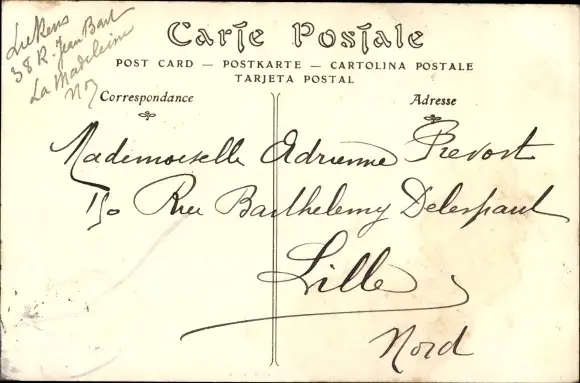 Luckens
38 R. Jean Bart
La Madeleine
Carte Postale
POST CARD — POSTKARTE — CARTOLINA POSTALE
TARJETA POSTAL
Correspondance
Adresse
Mademoiselle Adrienne Prevost
150 Rue Barthelemy Delespaul
Lille
Nord